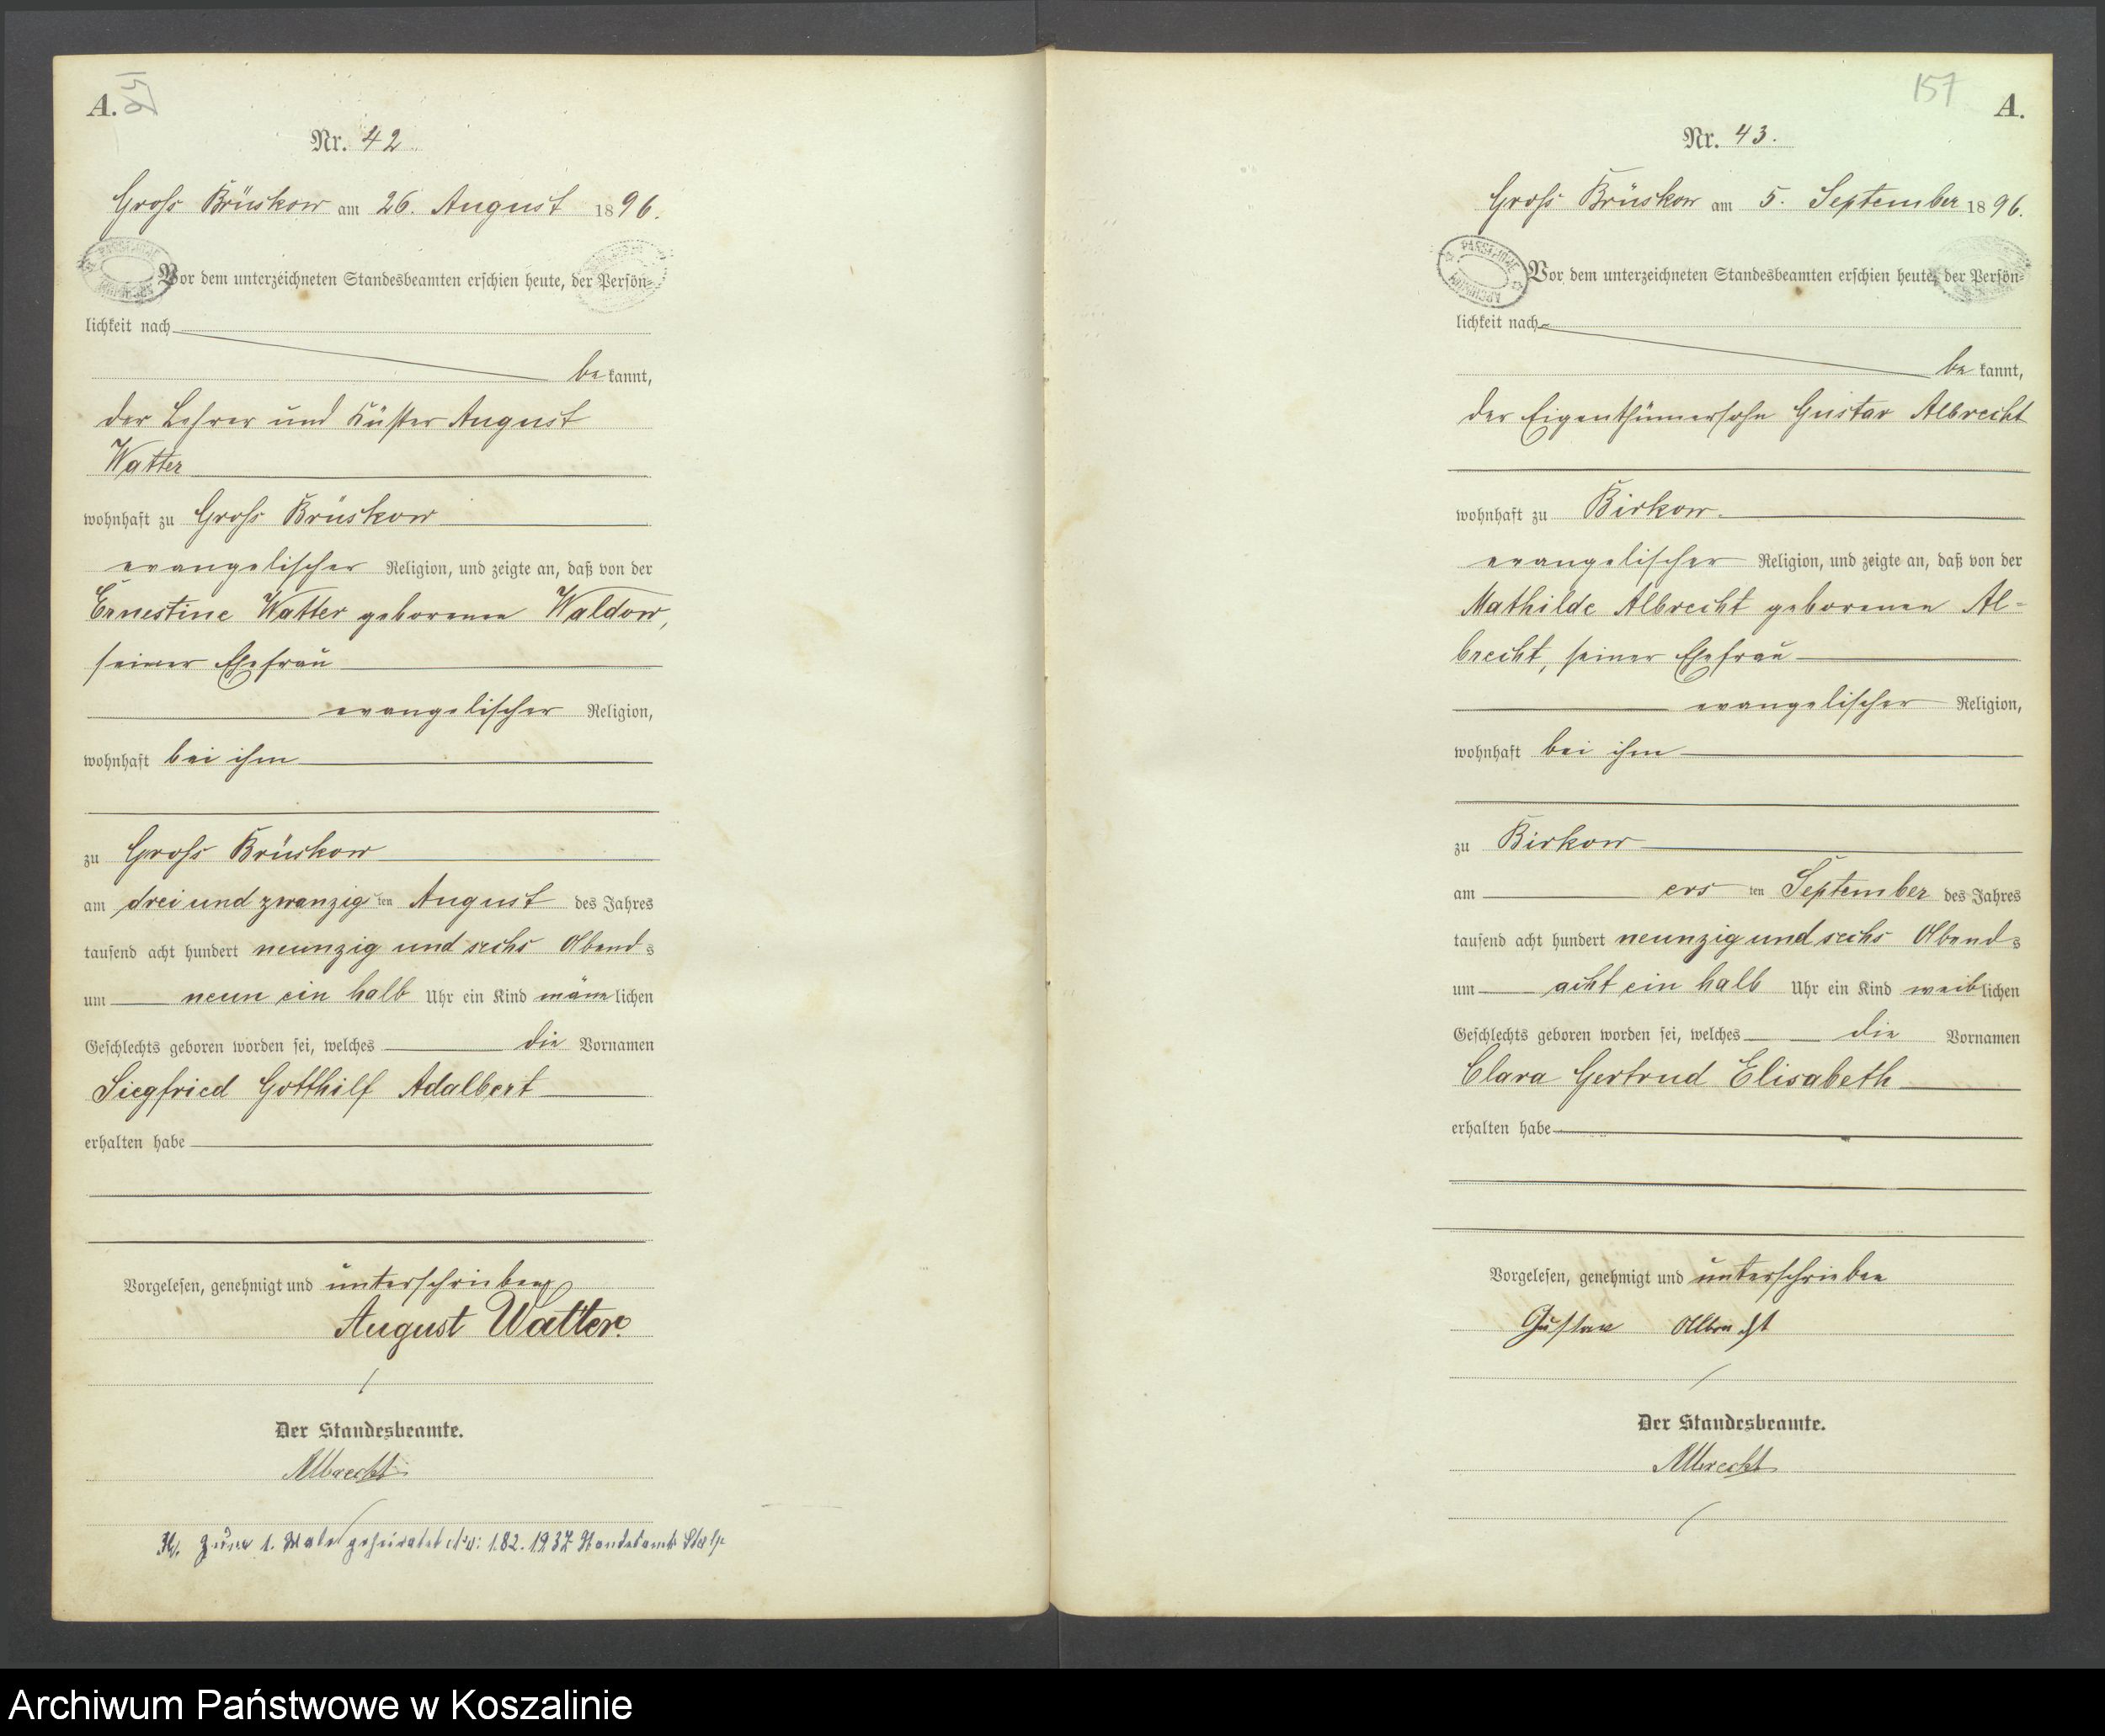 A.
Nr. 42.
Groß Brüskow am 26. August 1896.
Vor dem unterzeichneten Standesbeamten erschien heute, der Persön-
lichkeit nach
be kannt,
der Lehrer und Küster August
Watter
wohnhaft zu Groß Brüskow
evangelischer Religion, und zeigte an, daß von der
Ernestine Watter geborenen Waldow,
seiner Ehefrau
evangelischer Religion,
wohnhaft bei ihm
zu Groß Brüskow
am drei und zwanzig ten August des Jahres
tausend acht hundert neunzig und sechs Abends
um neun ein halb Uhr ein Kind männlichen
Geschlechts geboren worden sei, welches die Vornamen
Siegfried Gotthilf Adalbert
erhalten habe
Vorgelesen, genehmigt und unterschrieben
August Watter.
Der Standesbeamte.
Albrecht
zum 1. Male geheiratet Nr: 182. 1937 Standesamt Stolp
157
A.
Nr. 43.
Groß Brüskow am 5. September 1896.
Vor dem unterzeichneten Standesbeamten erschien heute, der Persön-
lichkeit nach
be kannt,
der Eigenthümersohn Gustav Albrecht
wohnhaft zu Birkow.
evangelischer Religion, und zeigte an, daß von der
Mathilde Albrecht geborenen Al-
brecht, seiner Ehefrau
evangelischer Religion,
wohnhaft bei ihm
zu Birkow
am ers ten September des Jahres
tausend acht hundert neunzig und sechs Abends
um acht ein halb Uhr ein Kind weiblichen
Geschlechts geboren worden sei, welches die Vornamen
Clara Gertrud Elisabeth
erhalten habe
Vorgelesen, genehmigt und unterschrieben
Gustav Albrecht
Der Standesbeamte.
Albrecht
Archiwum Państwowe w Koszalinie